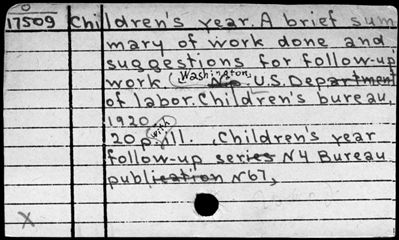 17509 Children's year. A brief sum
mary of work done and
suggestions for follow-up
work (Washington, U.S. Department
of labor. Children's bureau,
1920.
20 p. ill. (with Children's year
follow-up series N4 Bureau
publication N67,
X